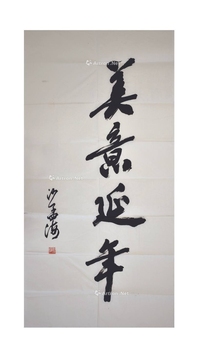 美意延年
沙孟海